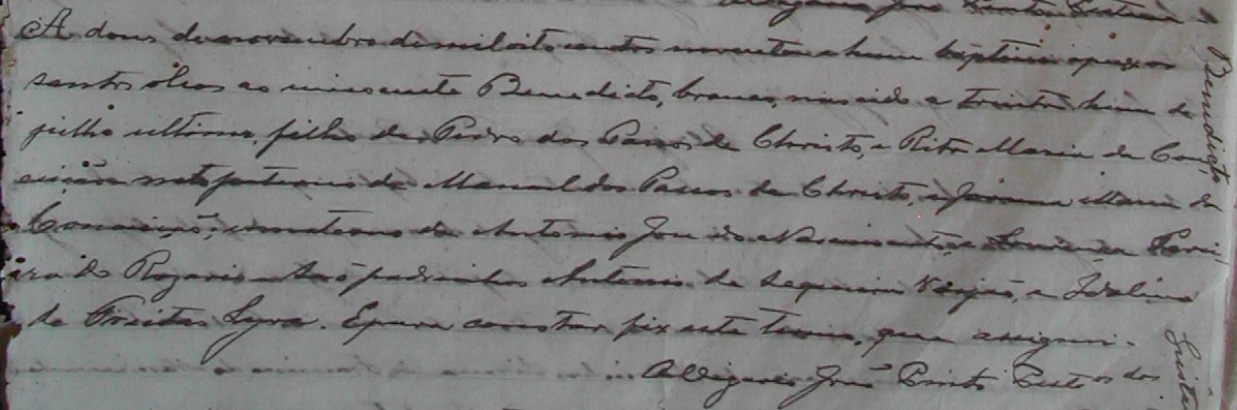 A dous de novembro de mil oitocentos noventa e hum baptisei e puz os
santos oleos ao innocente Benedicto, branco, nascido a trinta hum de
julho ultimo, filho de Pedro dos Passos de Christo, e Rita Maria da Con-
ceição neto paterno de Manoel dos Passos de Christo, e Joanna Maria da
Conceição; e materno de Antonio José do Nascimento, e Lourença Perei
ra do Rozario. São padrinhos Antonio de Sequeira e Idalina
de Freitas Lyra. E para constar fiz este termo, que assignei.
O Vigario José Pinto
Benedicto